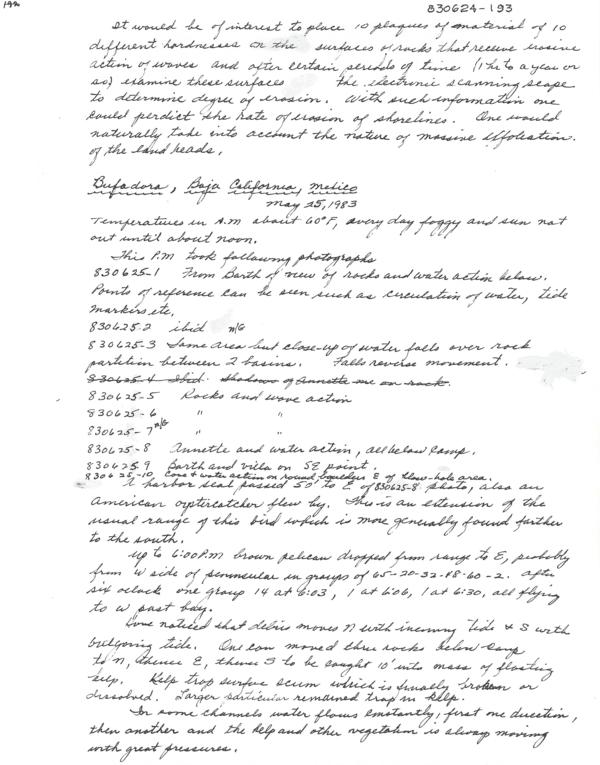 192
830624-193
It would be of interest to place 10 plaques of material of 10
different hardnesses on the surfaces of rocks that receive erosive
action of waves and after certain periods of time (1 hr to a year or
so) examine these surfaces the electronic scanning scope
to determine degree of erosion. With such information one
could perdict the rate of erosion of shorelines. One would
naturally take into account the nature of massive exfoliation
of the land heads.
Bufadora, Baja California, Mexico
May 25, 1983
Temperatures in A.M about 60°F, every day foggy and sun not
out until about noon.
This P.M took following photographs
830625-1 From Barth of view of rocks and water action below.
Points of reference can be seen such as circulation of water, tide
markers etc.
830625-2 ibid N/G
830625-3 Same area but close-up of water falls over rock
partition between 2 basins. Falls reverse movement.
830625-4 Ibid. Shadows of Annette me on rock.
830625-5 Rocks and wave action
830625-6 " "
830625-7 N/G " "
830625-8 Annette and water action, all below camp.
830625 9 Barth and villa on SE point.
830625-10 Cove & water action on round boulders E of blow-hole area.
A harbor seal passed 50' to E of 830625-8 photo, also an
American oystercatcher flew by. This is an extension of the
usual range of this bird which is more generally found farther
to the south.
Up to 6:00 P.M brown pelican dropped from range to E, probably
from W side of penninsular in groups of 65-20-32-18-60-2. After
six oclock one group 14 at 6:03, 1 at 6:06, 1 at 6:30, all flying
to W past bay.
noticed that debris moves N with incoming tide & S with
outgoing tide. One can moved thru rocks below camp
to N, thence E, thence S to be caught 10' into mass of floating
kelp. Kelp trap surface scum which is finally broken or
dissolved. Larger particular remained trap in kelp.
In some channels water flows constantly, first one direction,
then another and the kelp and other vegetation is always moving
with great pressures.